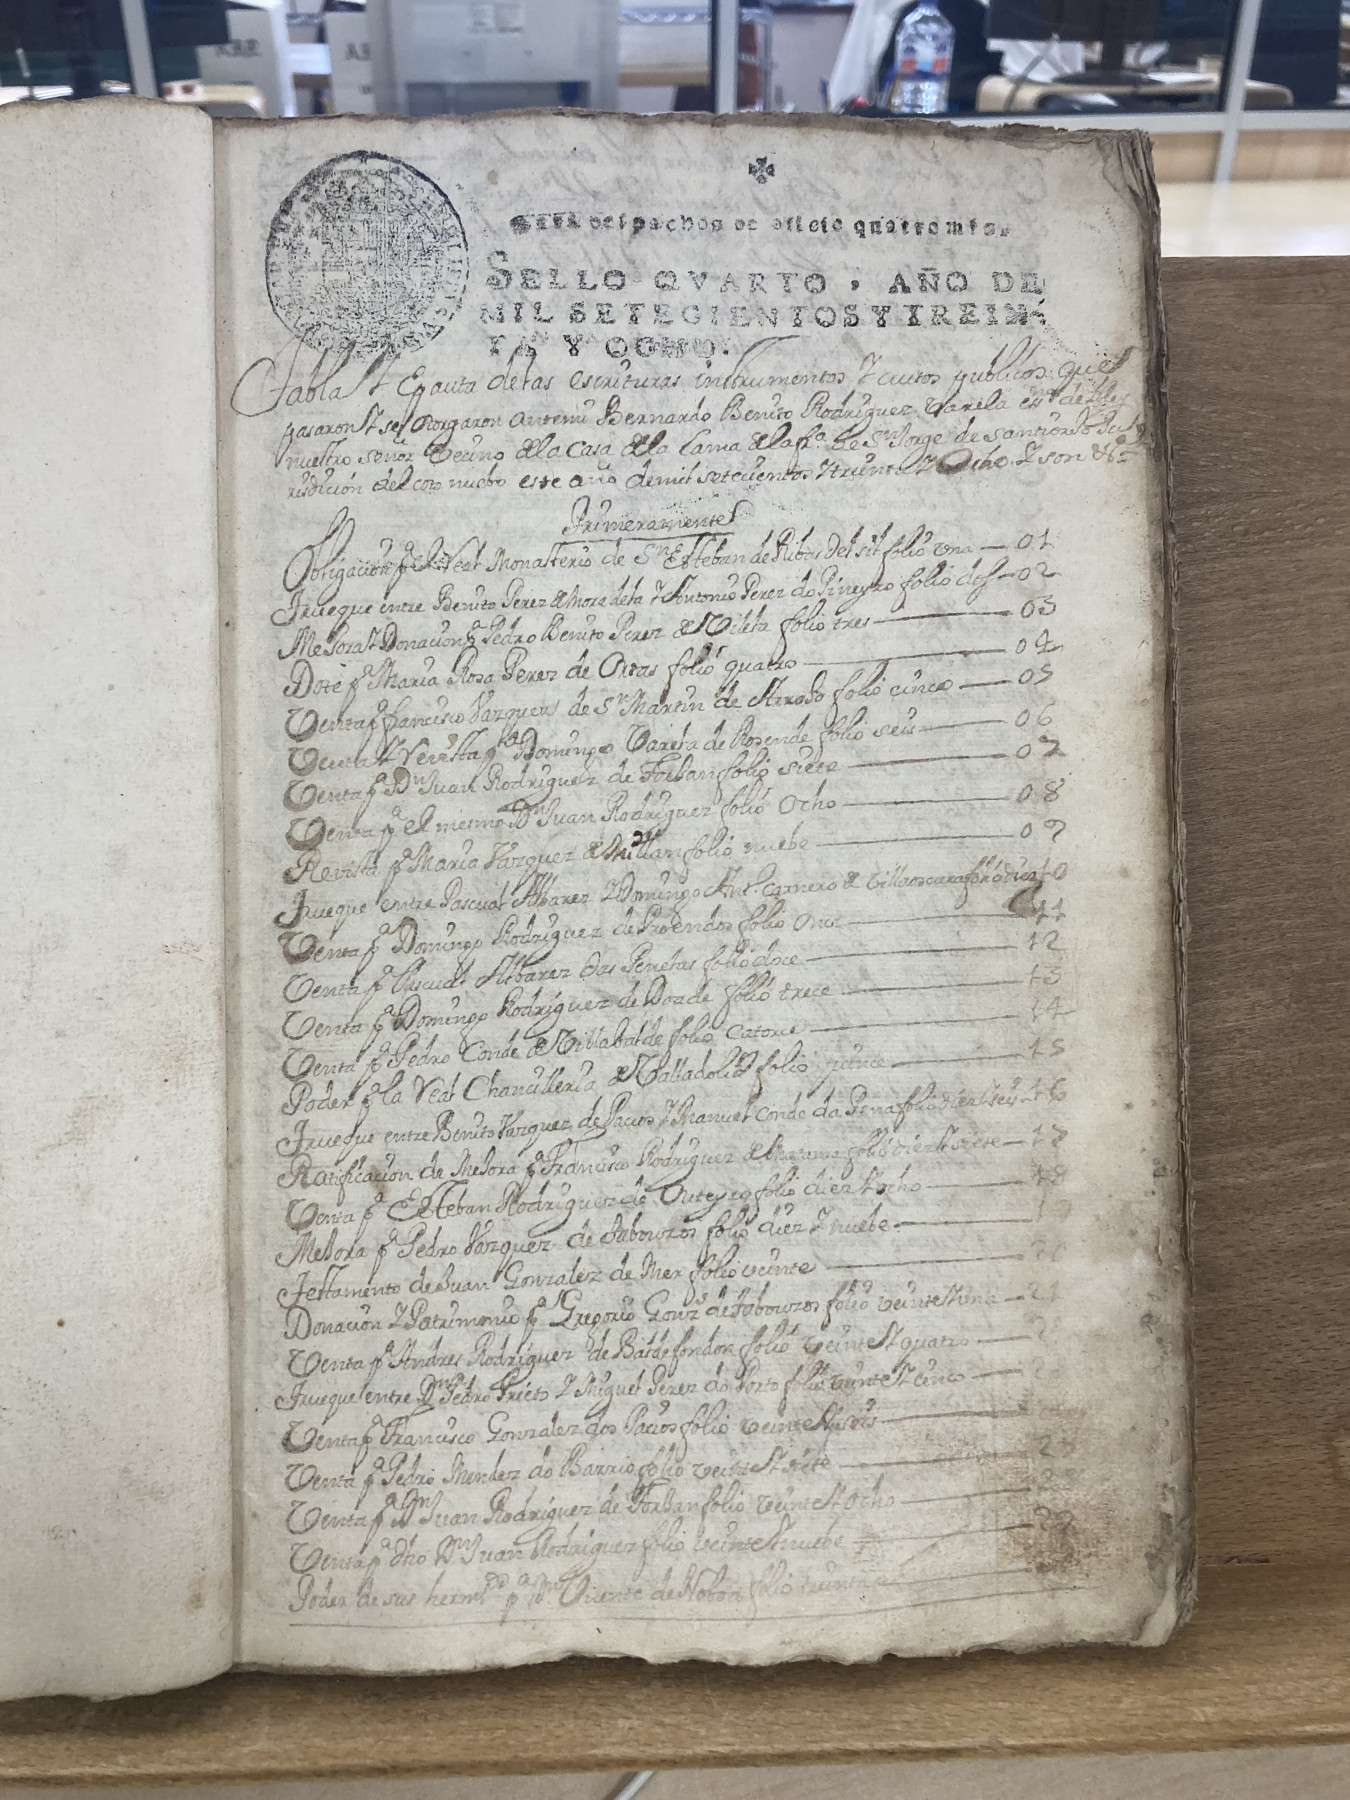 Para despachos de oficio quatro mrs.
SELLO QVARTO, AÑO DE
MIL SETECIENTOS Y TREIN-
TA Y OCHO.
Tabla Y Epauta de las escrituras instrumentos Y autos publicos que
pasaron Y se otorgaron antemi Bernardo Benito Rodriguez Varela essno de el Rey
nuestro señor Vecino de la Casa de la Lama de la fra. de Sn Jorge de santiorxo Ju
risdicion del coto nuebo este año de mil setecientos Y treinta Y Ocho Y son
Primeramente
Obligacion pa el Real Monasterio de Sn Esteban de Ribas del sil folio una — 01
Trueque entre Benito Perez de Moradela Y Antonio Perez do Pineyro folio dos — 02
Mejora Y Donacion pa Pedro Benito Perez de Vilela folio tres — 03
Dote pa Maria Rosa Perez de Ortas folio quatro — 04
Venta pa francisco Vazquez de Sn Martin de Arrojo folio cinco — 05
Venta Y Revista pa Domingo Varela de Rosende folio seis — 06
Venta pa Dn Juan Rodriguez de Forjan folio siete — 07
Venta pa el mesmo Dn Juan Rodriguez folio Ocho — 08
Revista pa Maria Vazquez de Millan folio nuebe — 09
Trueque entre Pascual Albarez Y Domingo Anto. carnero de Villaoscura folio diez 10
Venta pa Domingo Rodriguez de Proendos folio Once — 11
Venta pa Pascual Albarez das Penelas folio doce — 12
Venta pa Domingo Rodriguez de Doade folio trece — 13
Venta pa Pedro Conde de Villabalde folio Catorce — 14
Poder pa la Real Chancilleria de Valladolid folio quince — 15
Trueque entre Benito Vazquez de Pacios Y Manuel Conde da Pena folio diez Y seis 16
Ratificacion de Mejora pa Francisco Rodriguez de Matama folio diez Y siete — 17
Venta pa Esteban Rodriguez de Outeyro folio diez Y ocho — 18
Mejora pa Pedro Vazquez de Abouzos folio diez Y nuebe — 1
Testamento de Juan Gonzalez de Mer folio veinte — 20
Donacion Y Patrimonio pa Gregorio Gonzs de Abouzos folio veinte Y una — 21
Venta pa Andres Rodriguez de Baldefondon folio veinte Y quatro — 2
Trueque entre Dn Pedro Prieto Y Miguel Perez do Porto folio veinte Y cinco —
Venta pa Francisco Gonzalez dos Pacios folio veinte Y seis —
Venta pa Pedro Mendez do Barrio folio veinte Y siete — 2
Venta pa Dn Juan Rodriguez de Forjan folio veinte Y Ocho —
Venta pa dho Dn Juan Rodriguez folio veinte Y nuebe — 29
Poder de sus herms pa Dn Vicente de Noboa folio treinta —